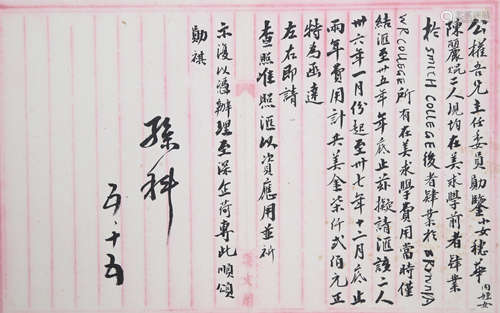 公權吾兄主任委員勛鑒小女穗華內姪女
陳麗 二人現均在美求學前者肄業
於SMICH COLLEGE後者肄業於
WR COLLEGE所有在美求學費用當時僅
結滙至卅五年年底止茲擬請滙該二人
卅六年一月份起至卅七年十二月底止
兩年費用計共美金柒仟弍佰元正
特為函達
左右即請
查照准照滙以資應用並祈
示復以憑辦理至深企荷專此順頌
勛祺
孫科
五·十五